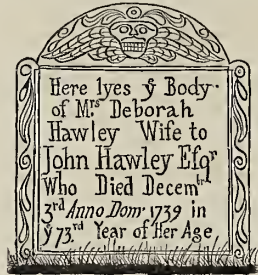 Here lyes yͤ Body
of Mʳˢ Deborah
Hawley Wife to
John Hawley Esqʳ
Who Died Decemᵇʳ
3ʳᵈ Anno Dom: 1739 in
yͤ 73.ʳᵈ Year of Her Age